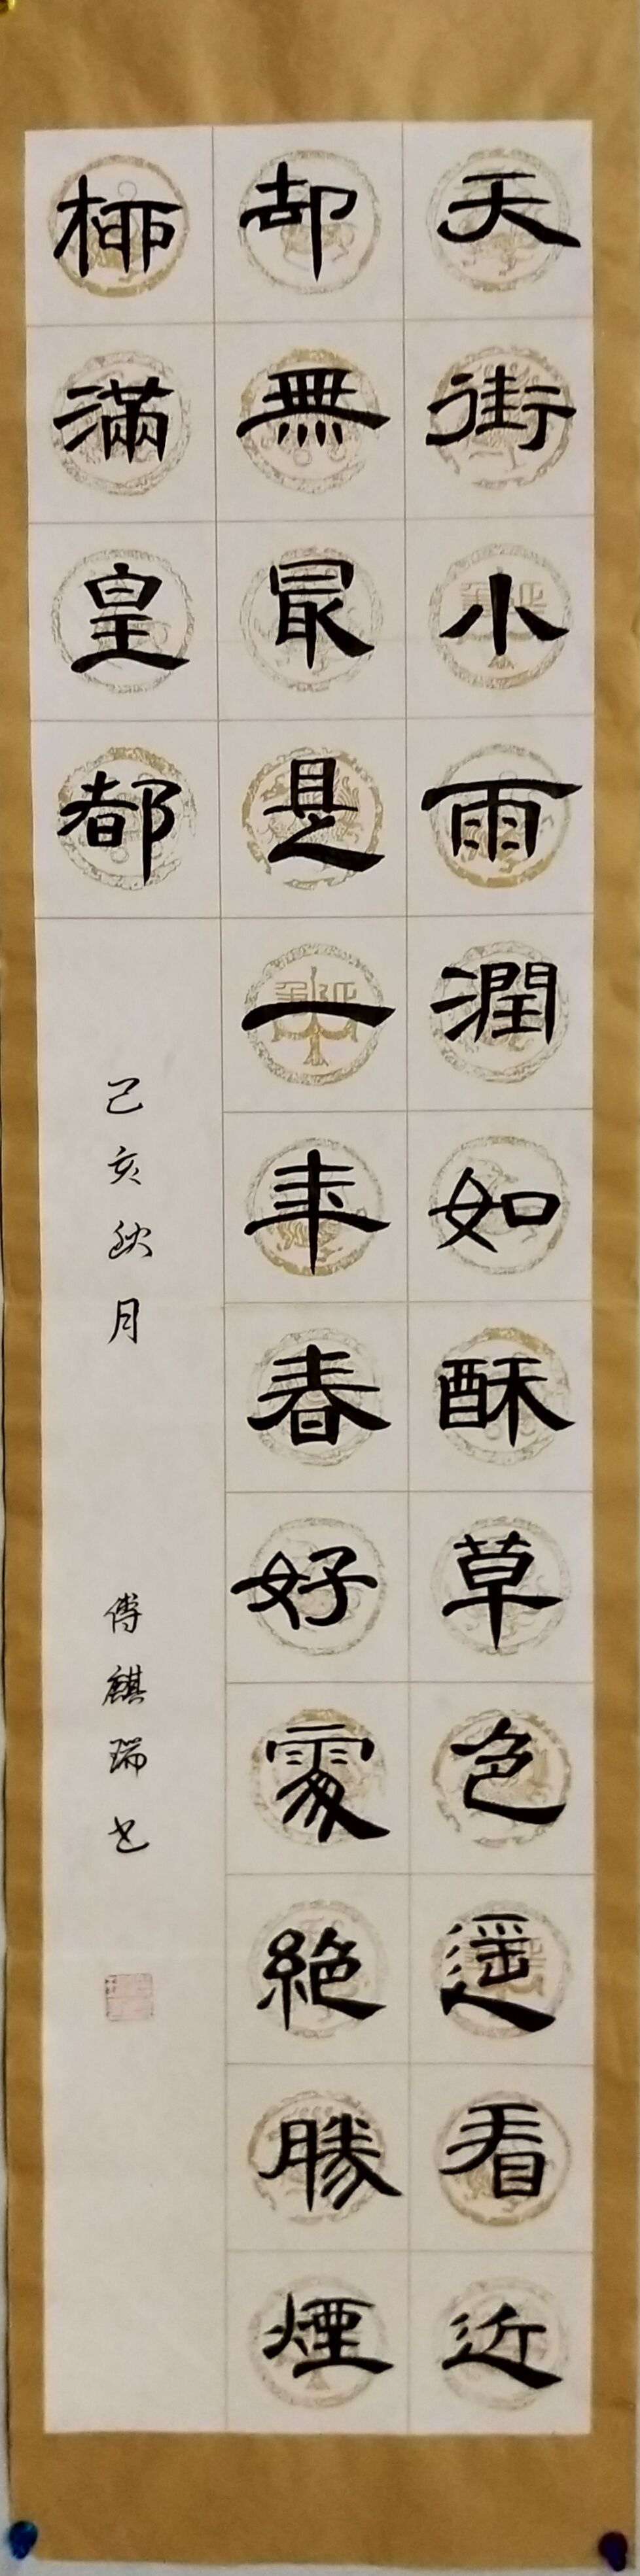 天街小雨潤如酥草色遥看近
却無最是一年春好處絶勝煙
柳滿皇都
己亥秋月 傅麒瑞书